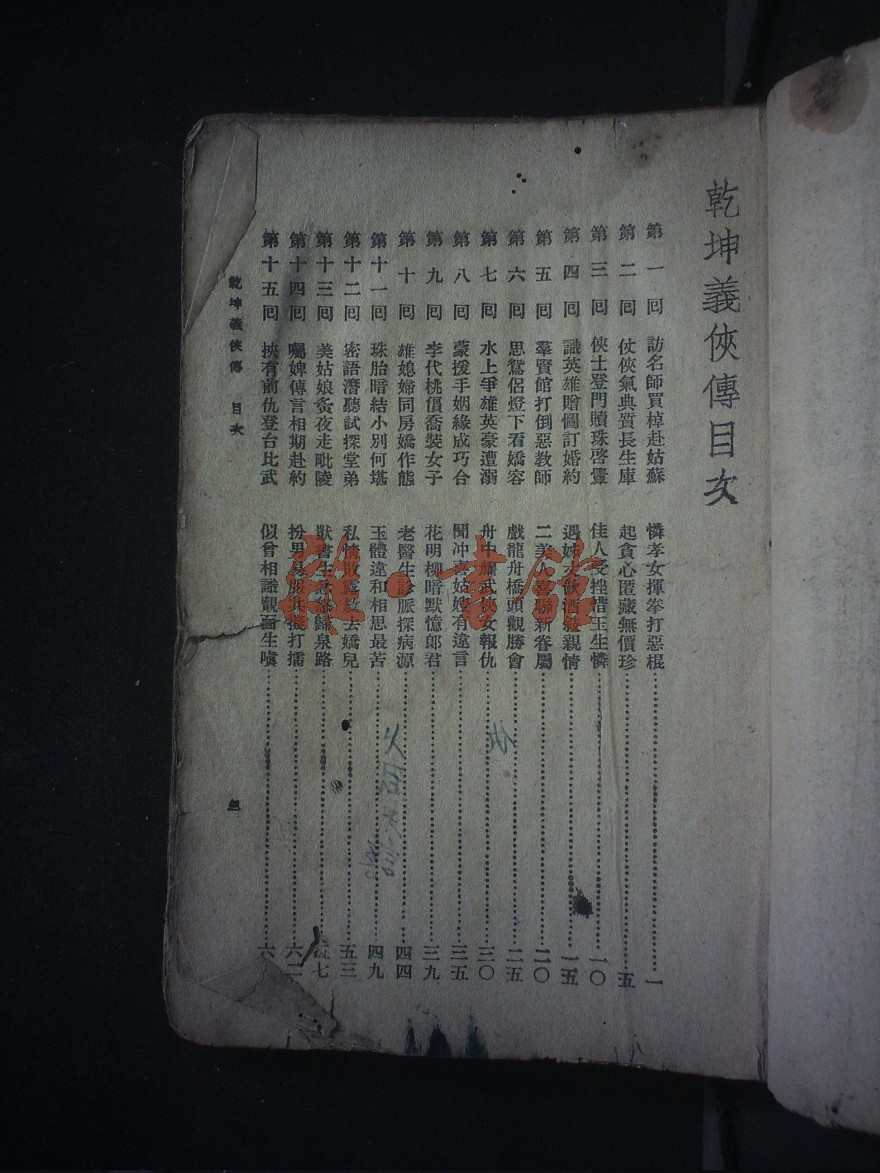 乾坤義俠傳目次
第一囘 訪名師買棹赴姑蘇 憐孝女揮拳打惡棍 一
第二囘 仗俠氣典質長生庫 起貪心匿藏無價珍 五
第三囘 俠士登門贖珠啓釁 佳人受挫惜玉生憐 一〇
第四囘 識英雄贈圖訂婚約 遇 飲酒 親情 一五
第五囘 羣賢館打倒惡教師 二美人喜聯新眷屬 二〇
第六囘 思鴛侶燈下看嬌容 戲龍舟橋頭觀勝會 二五
第七囘 水上爭雄英豪遭溺 舟中耀武俠女報仇 三〇
第八囘 蒙援手姻緣成巧合 聞冲喜姑嫂有違言 三五
第九囘 李代桃僵喬裝女子 花明柳暗默憶郞君 三九
第十囘 雄媳婦同房嬌作態 老醫生診脈探病源 四四
第十一囘 珠胎暗結小別何堪 玉體違和相思最苦 四九
第十二囘 密語潛聽試探堂弟 私情敗露放去嬌兒 五三
第十三囘 美姑娘夤夜走毗陵 獃書生 歸泉路 五七
第十四囘 囑婢傳言相期赴約 扮男易服 打擂 六二
第十五囘 挾有前仇登台比武 似曾相識覿面生嗔 六
乾坤義俠傳 目次
雜·書館